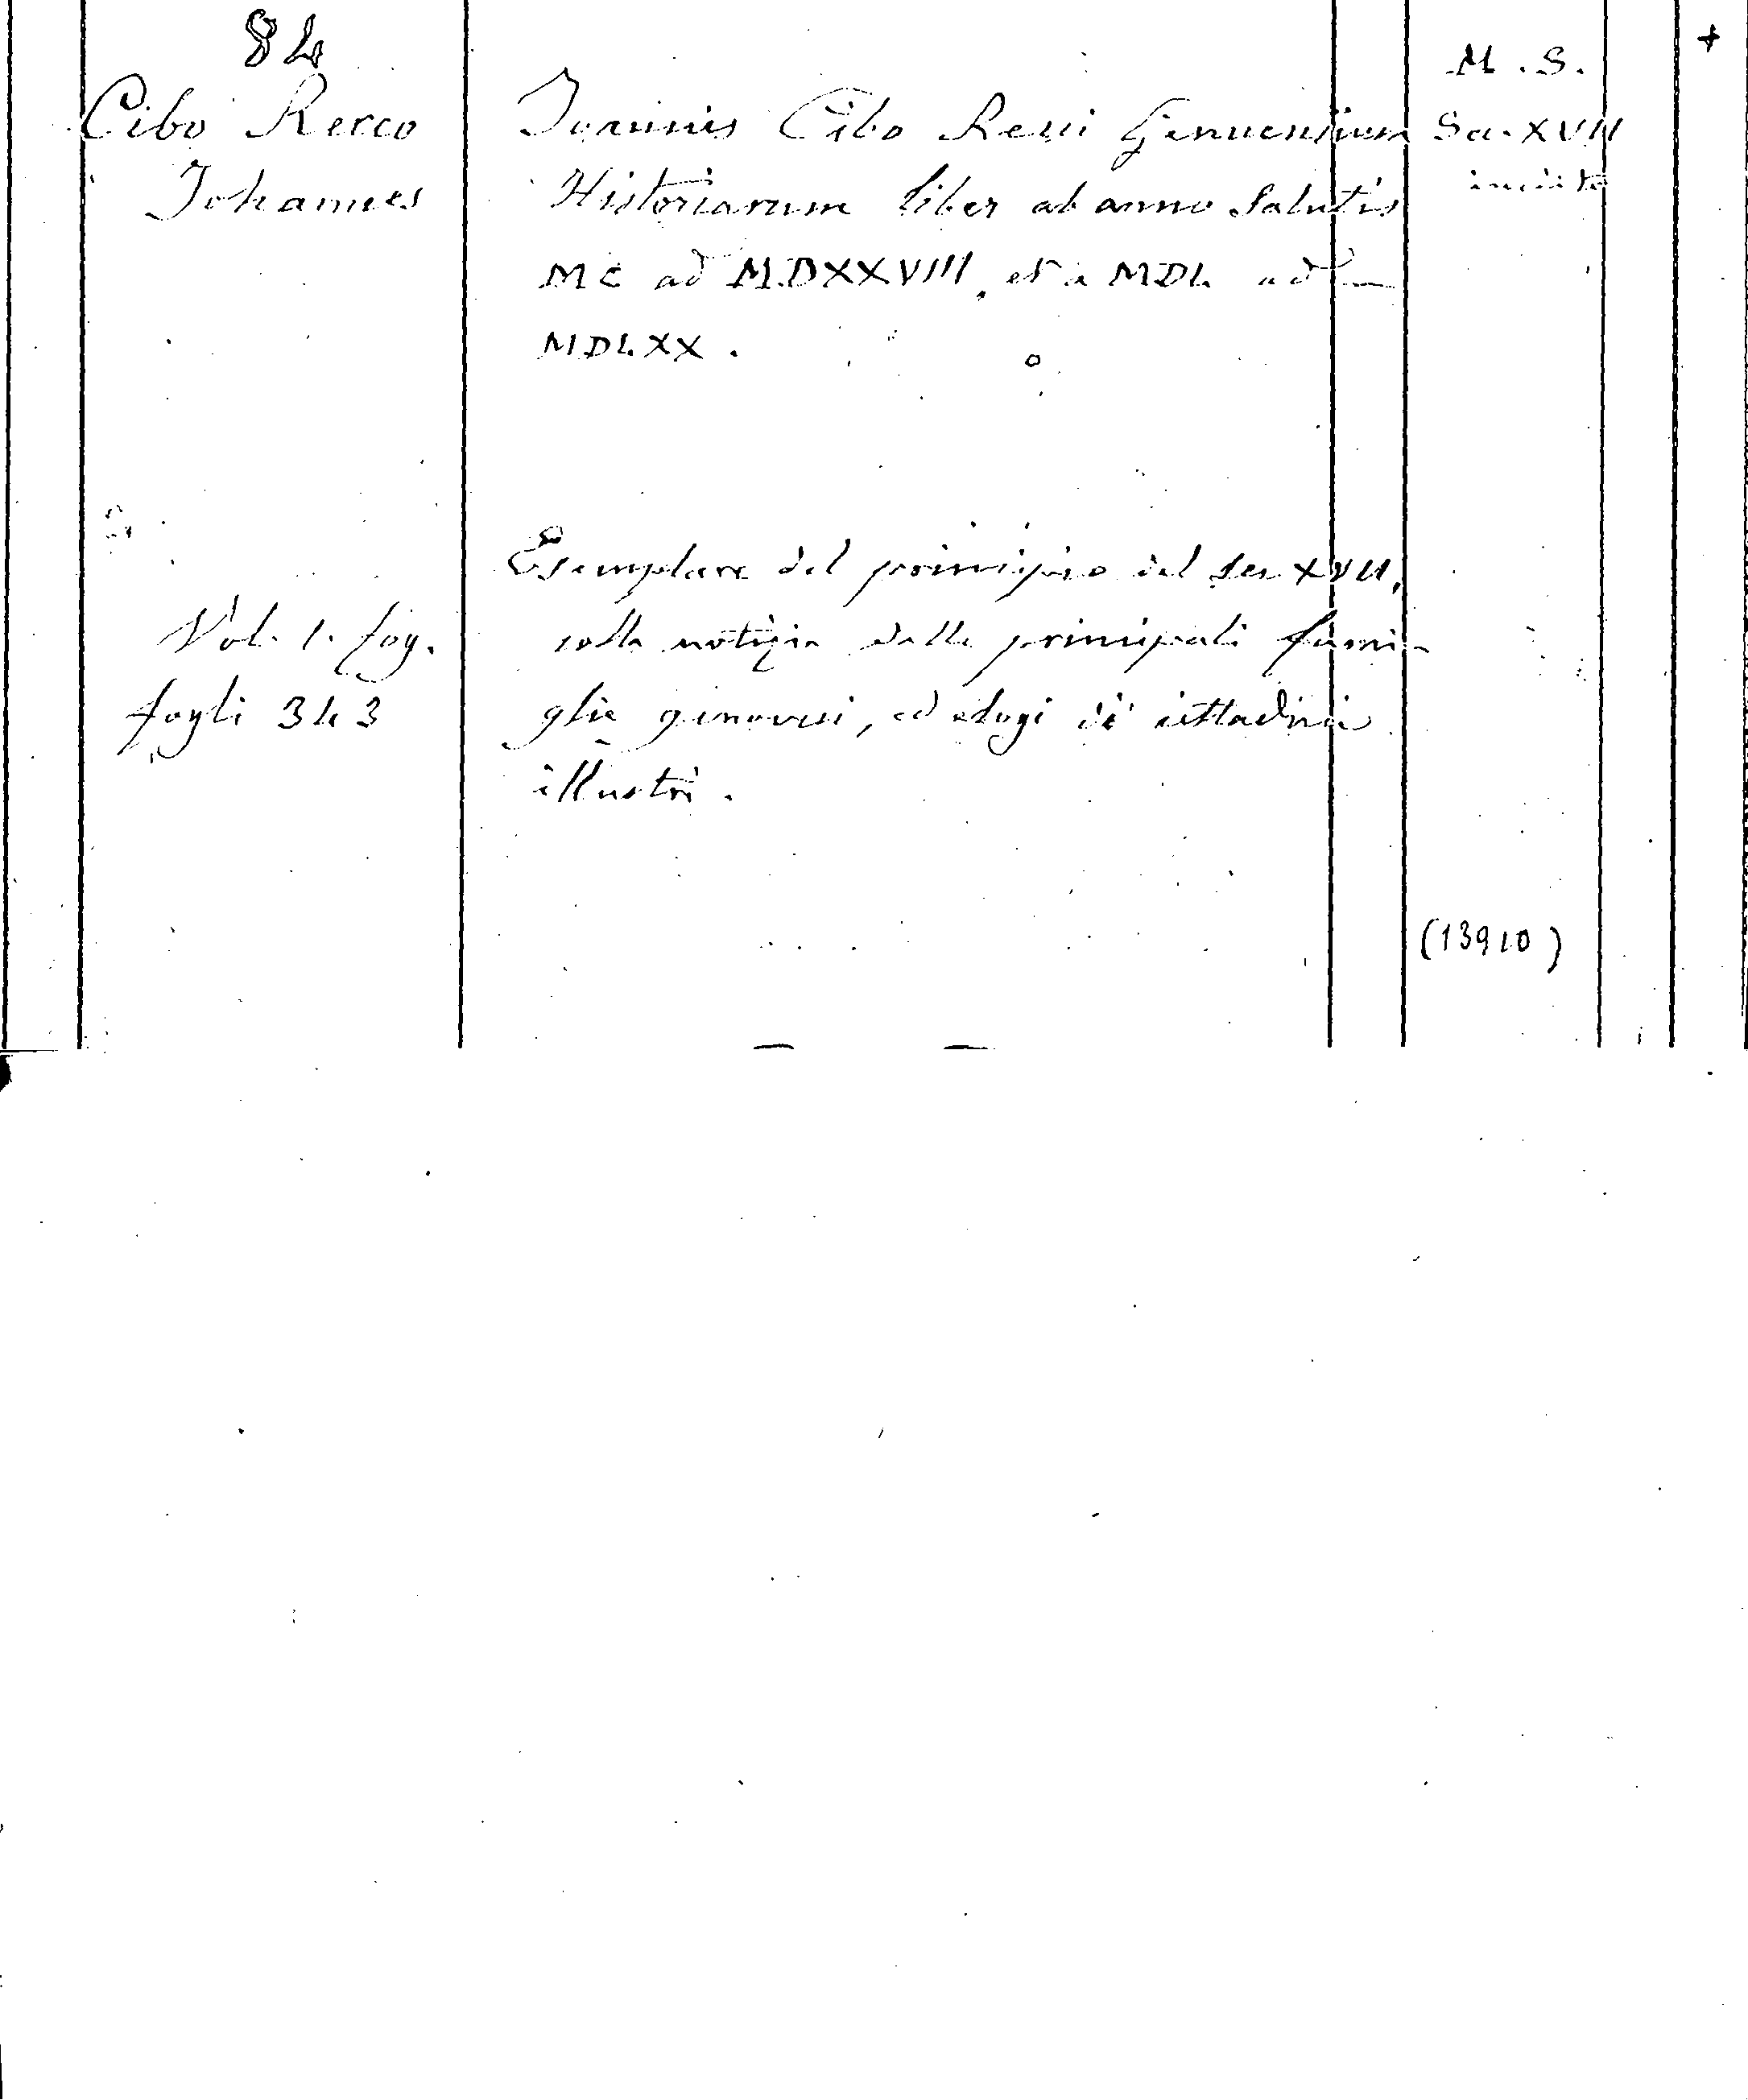 84
Cibo Recco
Johannes
Joannis Cibo Recci Genuensium
Historiarum liber ab anno Salutis
MC ad MDXXVIII, et a MDL ad
MDLXX.
M.S.
Sec. XVII
+
Esemplare del principio del sec XVII,
colla notizia delle principali fami-
glie genovesi, ed elogi di cittadini
illustri.
Vol. 1. fog.
fogli 343
(13910)